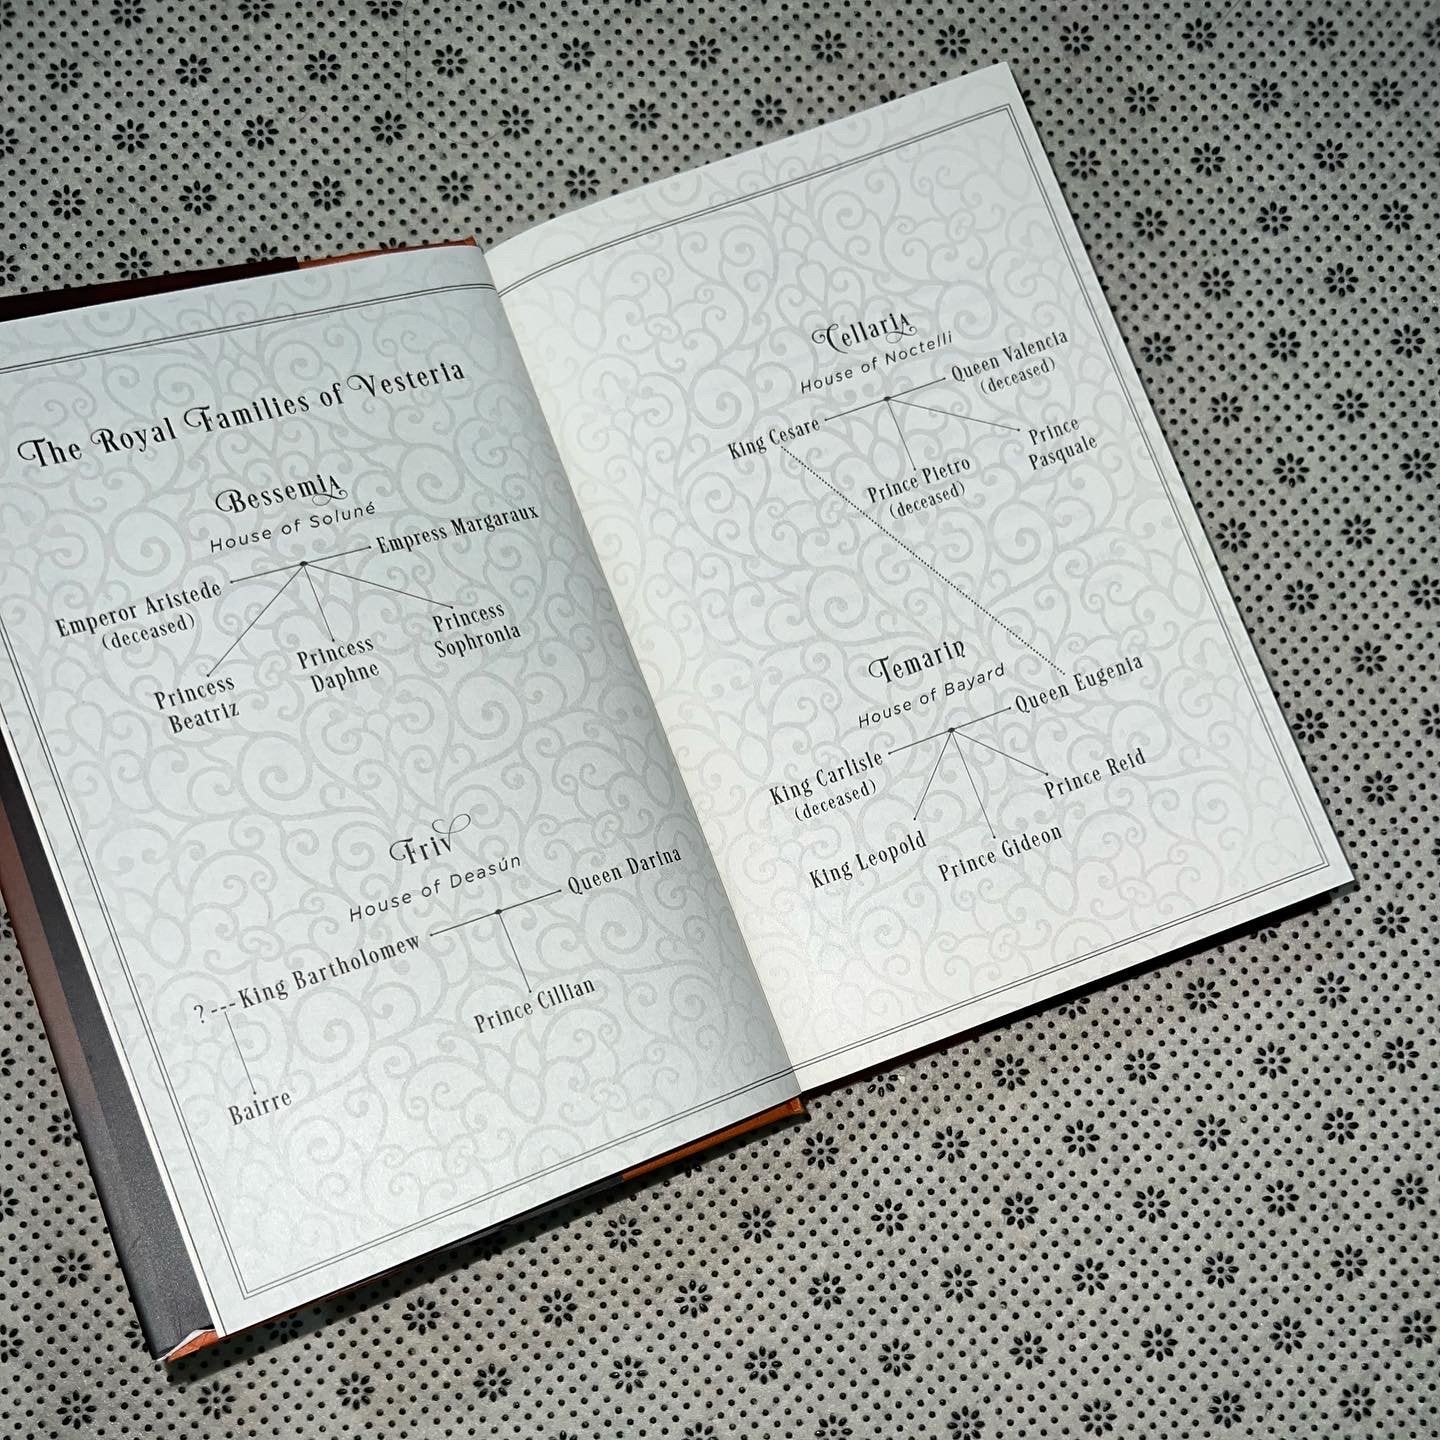 The Royal Families of Vesteria
Bessemia
House of Soluné
Emperor Aristede
(deceased)
Empress Margaraux
Princess
Beatriz
Princess
Daphne
Princess
Sophronia
Friv
House of Deasún
?---King Bartholomew
Queen Darina
Prince Cillian
Bairre
Cellaria
House of Noctelli
King Cesare
Queen Valencia
(deceased)
Prince Pietro
(deceased)
Prince
Pasquale
Temarin
House of Bayard
King Carlisle
(deceased)
Queen Eugenia
King Leopold
Prince Gideon
Prince Reid